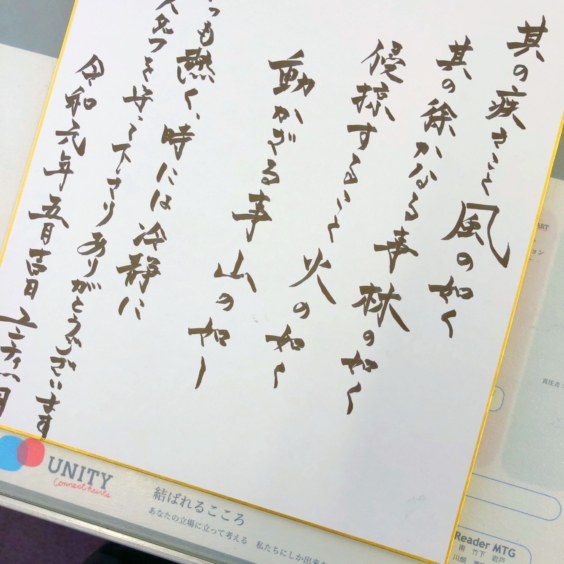 其の疾きこと風の如く
其の徐かなる事林の如く
侵掠すること火の如く
動かざる事山の如し
いつも熱く、時には冷静に
スタッフを守って下さりありがとうございます
令和元年 五月吉日
UNITY
結ばれるこころ
あなたの立場に立って考える 私たちにしか出来
Reader MTG